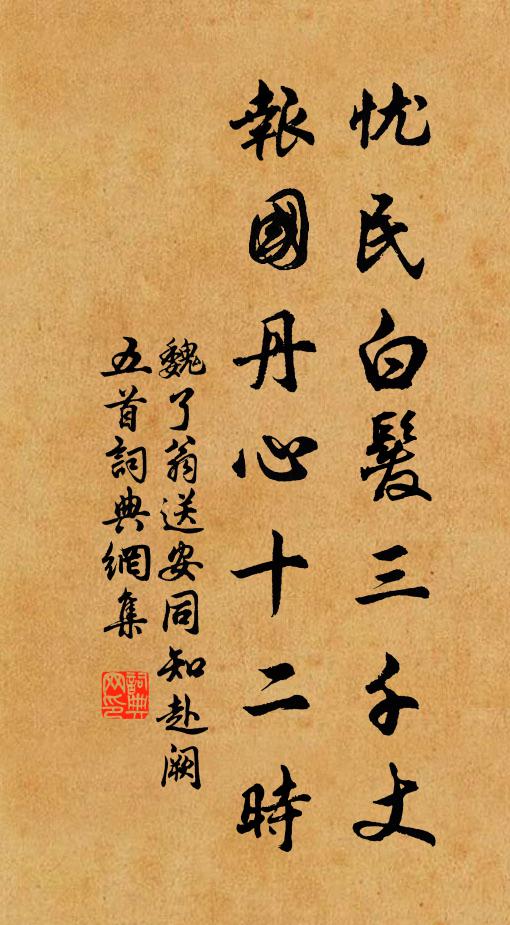 忧民白髮三千丈
報國丹心十二時
魏了翁送安同知赴阙
五首詞典網集
詞典网印